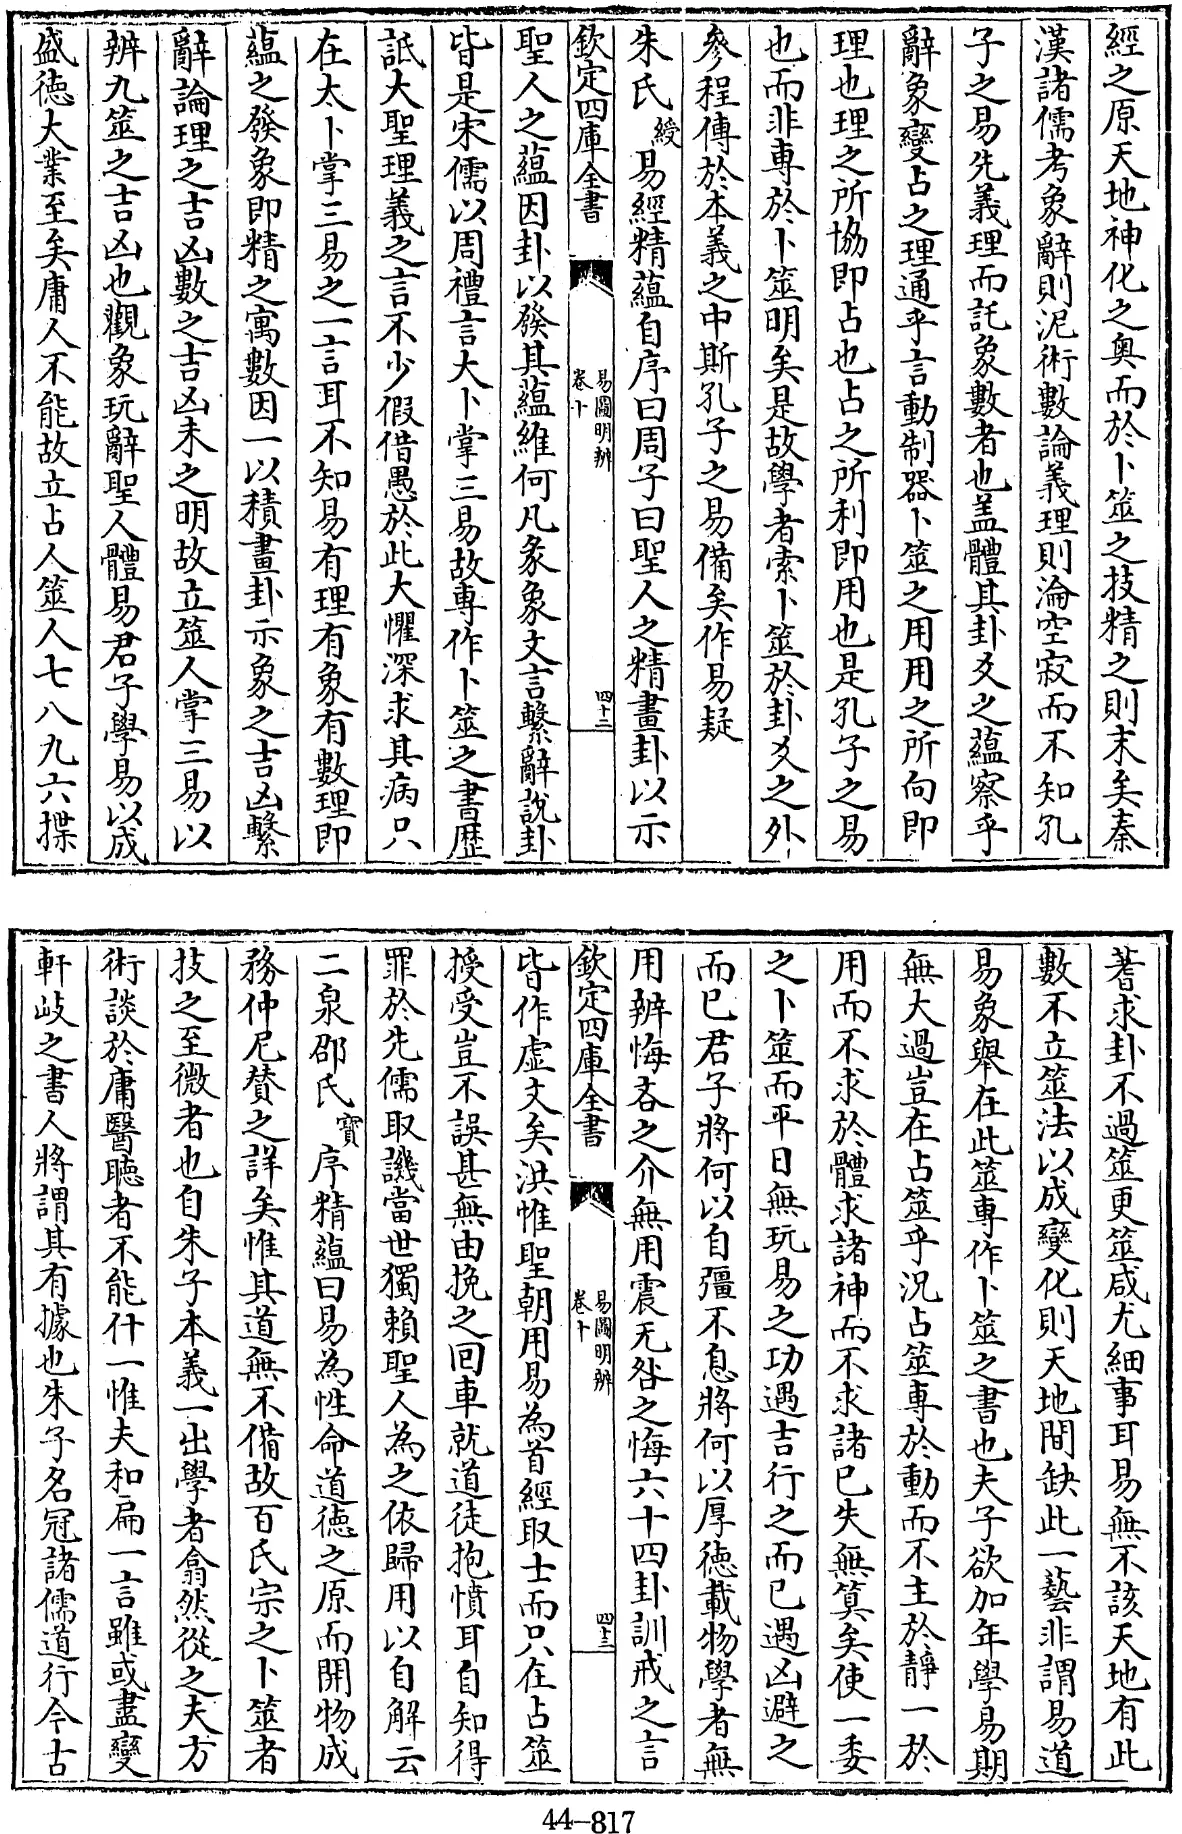 經之原天地神化之奥而於卜筮之技精之則末矣秦
漢諸儒考象辭則泥術數論義理則淪空寂而不知孔
子之易先義理而託象數者也盖體其卦爻之蘊察乎
辭象變占之理通乎言動制器卜筮之用用之所向即
理也理之所協即占也占之所利即用也是孔子之易
也而非專於卜筮明矣是故學者索卜筮於卦爻之外
參程傳於本義之中斯孔子之易備矣作易疑
朱氏綬易經精蘊自序曰周子曰聖人之精畫卦以示
欽定四庫全書
易圖明辨
卷十
四十二
聖人之蘊因卦以發其蘊維何凡彖象文言繫辭說卦
皆是宋儒以周禮言大卜掌三易故專作卜筮之書歷
詆大聖理義之言不少假借愚於此大懼深求其病只
在太卜掌三易之一言耳不知易有理有象有數理即
蘊之發象即精之寓數因一以積畫卦示象之吉凶繫
辭論理之吉凶數之吉凶未之明故立筮人掌三易以
辨九筮之吉凶也觀象玩辭聖人體易君子學易以成
盛德大業至矣庸人不能故立占人筮人七八九六揲
蓍求卦不過筮更筮咸尤細事耳易無不該天地有此
數不立筮法以成變化則天地間缺此一藝非謂易道
易象舉在此筮專作卜筮之書也夫子欲加年學易期
無大過豈在占筮乎況占筮專於動而不主於靜一於
用而不求於體求諸神而不求諸己失無筭矣使一委
之卜筮而平日無玩易之功遇吉行之而已遇凶避之
而已君子將何以自彊不息將何以厚德載物學者無
用辨悔吝之介無用震无咎之悔六十四卦訓戒之言
欽定四庫全書
易圖明辨
卷十
四十三
皆作虛文矣洪惟聖朝用易為首經取士而只在占筮
授受豈不誤甚無由挽之回車就道徒抱憤耳自知得
罪於先儒取譏當世獨賴聖人為之依歸用以自解云
二泉邵氏寶序精蘊曰易為性命道德之原而開物成
務仲尼贊之詳矣惟其道無不備故百氏宗之卜筮者
技之至微者也自朱子本義一出學者翕然從之夫方
術談於庸醫聽者不能什一惟夫和扁一言雖或盡變
軒岐之書人將謂其有據也朱子名冠諸儒道行今古
44-817